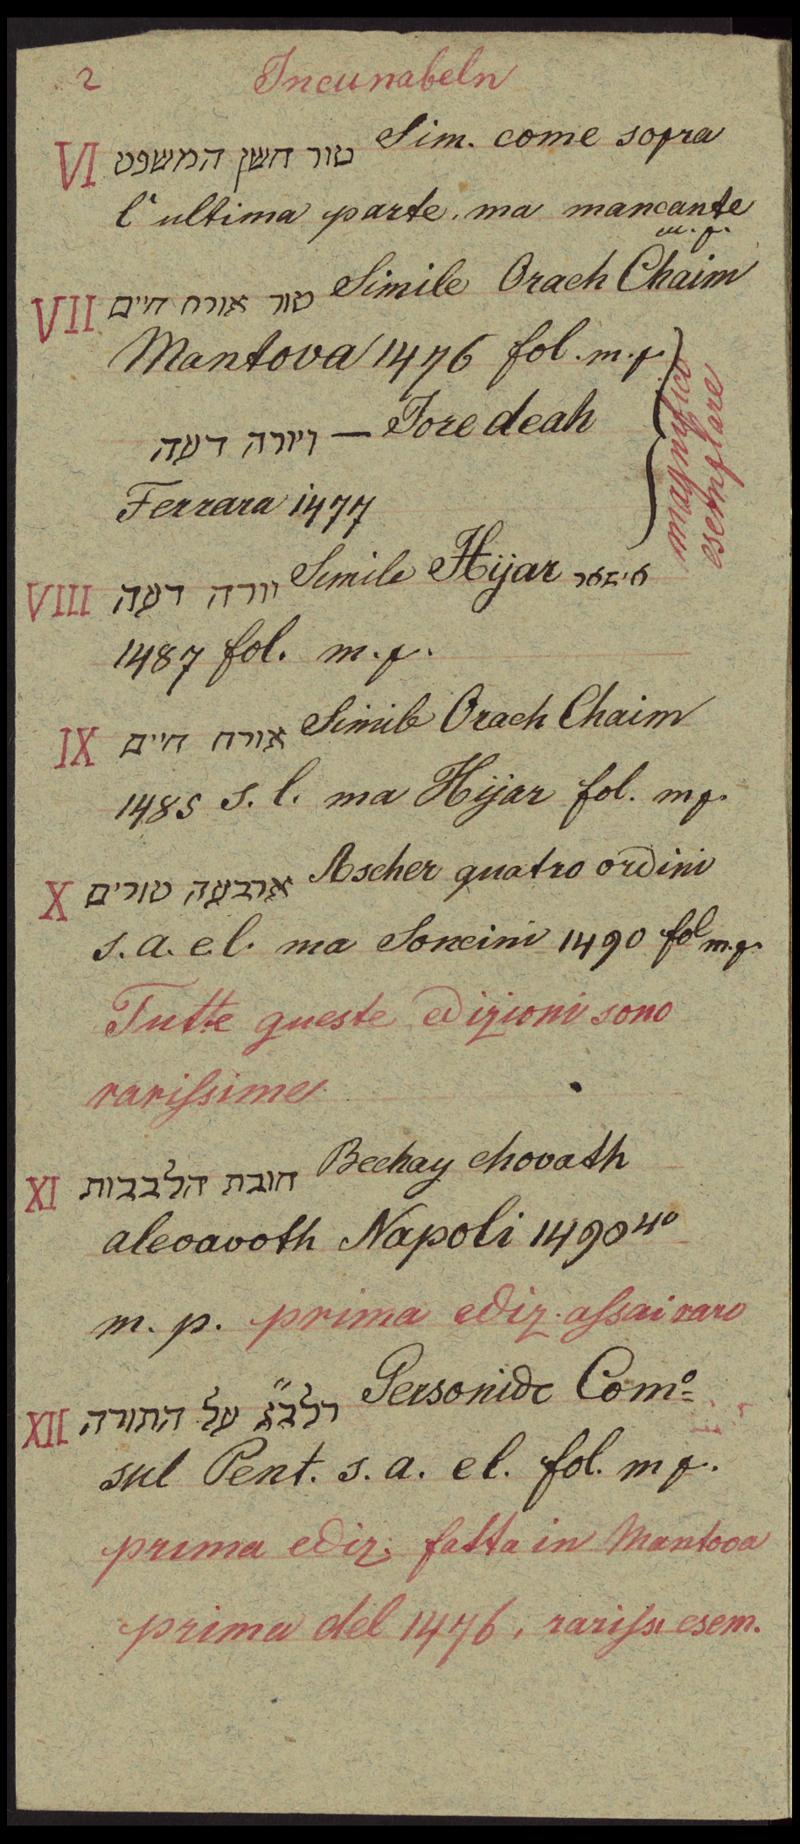 2 Incunabeln
VI טור חשן המשפט Sim. come sopra
l'ultima parte. ma mancante
m. p.
VII טור אורח חיים Simile Orach Chaim
Mantova 1476 fol. m. p.
ויורה דעה — Jore deah
Ferrara 1477
magnifico
esemplare
VIII יורה דעה Simile Hijar
1487 fol. m. p.
IX אורח חיים Simile Orach Chaim
1485 s. l. ma Hijar fol. m p.
X ארבעה טורים Ascher quatro ordini
s. a. e. l. ma Soncini 1490 fol m. p.
Tutte queste edizioni sono
rarissime
XI חובת הלבבות Bechay chovath
alevavoth Napoli 1490 4º
m. p. prima ediz. assai raro
XII רלב"ג על התורה Gersonide Comº
sul Pent. s. a. e l. fol. m p.
prima ediz. fatta in Mantova
prima del 1476, rariss. esem.